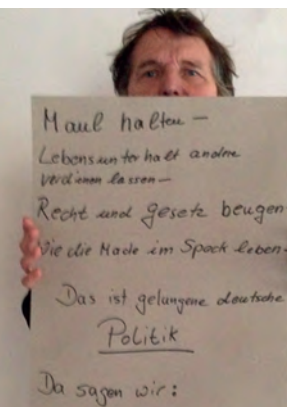 Maul halten –
Lebensunterhalt andere
verdienen lassen –
Recht und Gesetz beugen
Wie die Made im Speck leben.
Das ist gelungene deutsche
Politik
Da sagen wir: